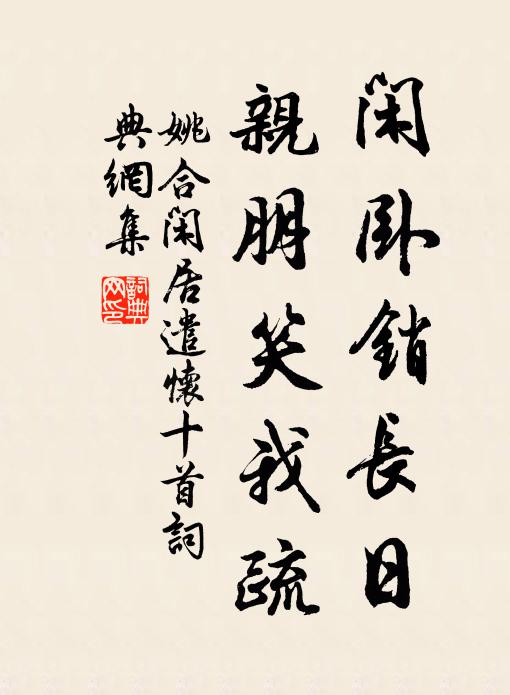 閑卧銷長日
親朋笑我疏
姚合閑居遣懷十首詞
典網集
詞典網印